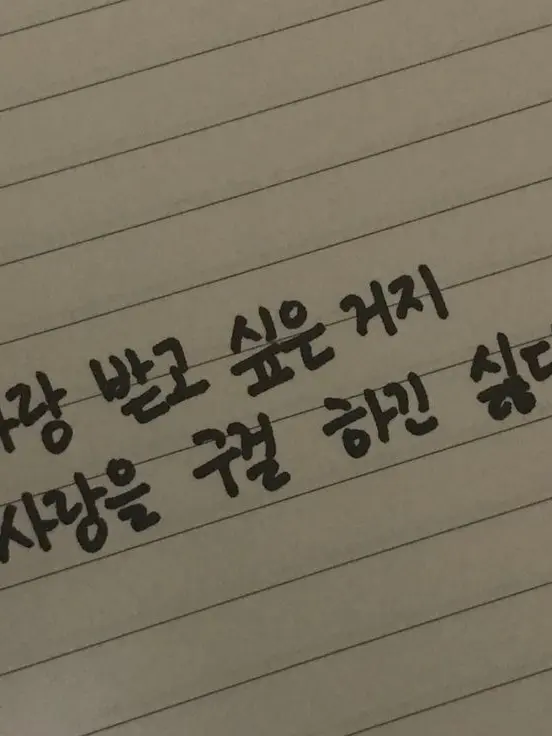 사랑 받고 싶은 거지
사랑을 구걸 하긴 싫다